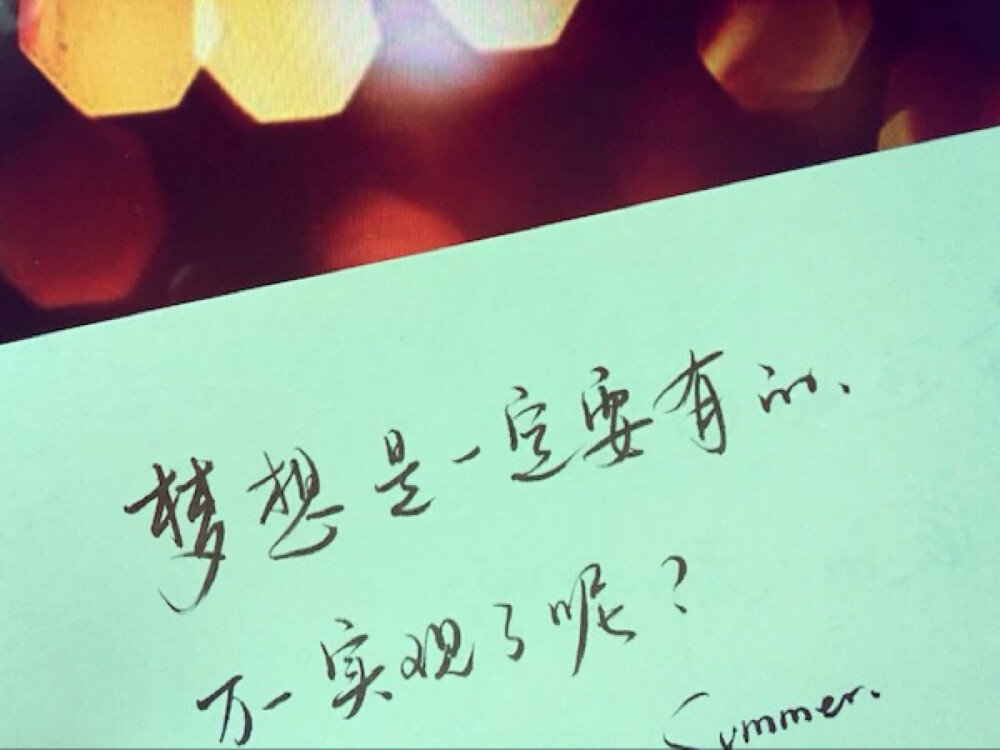 梦想是一定要有的、
万一实现了呢？
Summer.